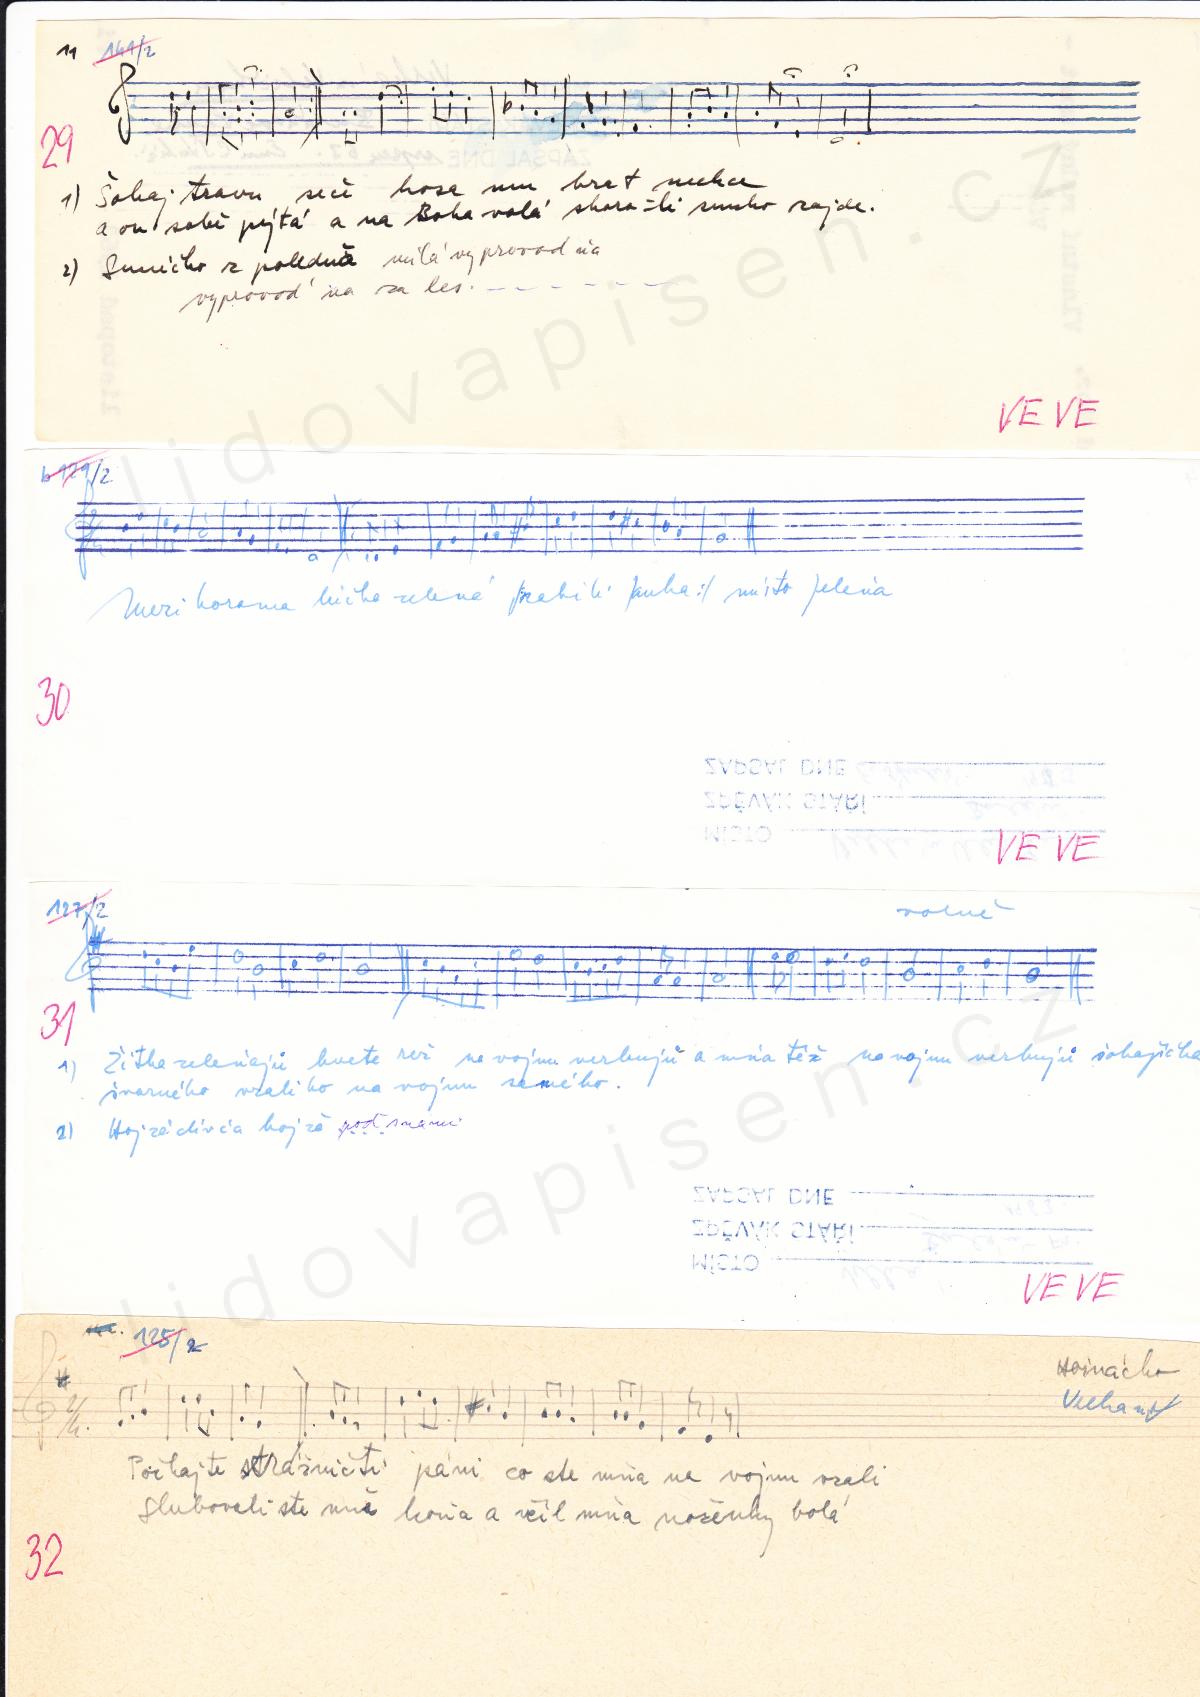 11 141/2
29
1) Šohaj travu seče kosa mu brat nechce
a on sobě pýtá a na Boha volá skoro-li sunko zajde.
2) Sunéčko z poledňa milá vyprovoď ňa
vyprovoď ňa za les.
VE VE
129/2
Mezi horama lúčka zelená zabili Janka :/ místo jeleňa
30
ZAPSAL DNE
ZPĚVÁK STÁŘÍ
MÍSTO
VE VE
127/2
volně
31
1) Žitko zelenajú kvete rež na vojnu verbujú a mňa též na vojnu verbujú šohajíčka
švarného vzali ho na vojnu samého.
2) Hojze divča hojzě poď snami
ZAPSAL DNE
ZPĚVÁK STÁŘÍ
MÍSTO
VE VE
125/2
Horňácko
Velká n/V
2/4
Počkajte strážničtí páni co ste mňa na vojnu vzali
Slubovali ste mně koňa a včil mňa noženky bolá
32
lidovapisen.cz
lidovapisen.cz